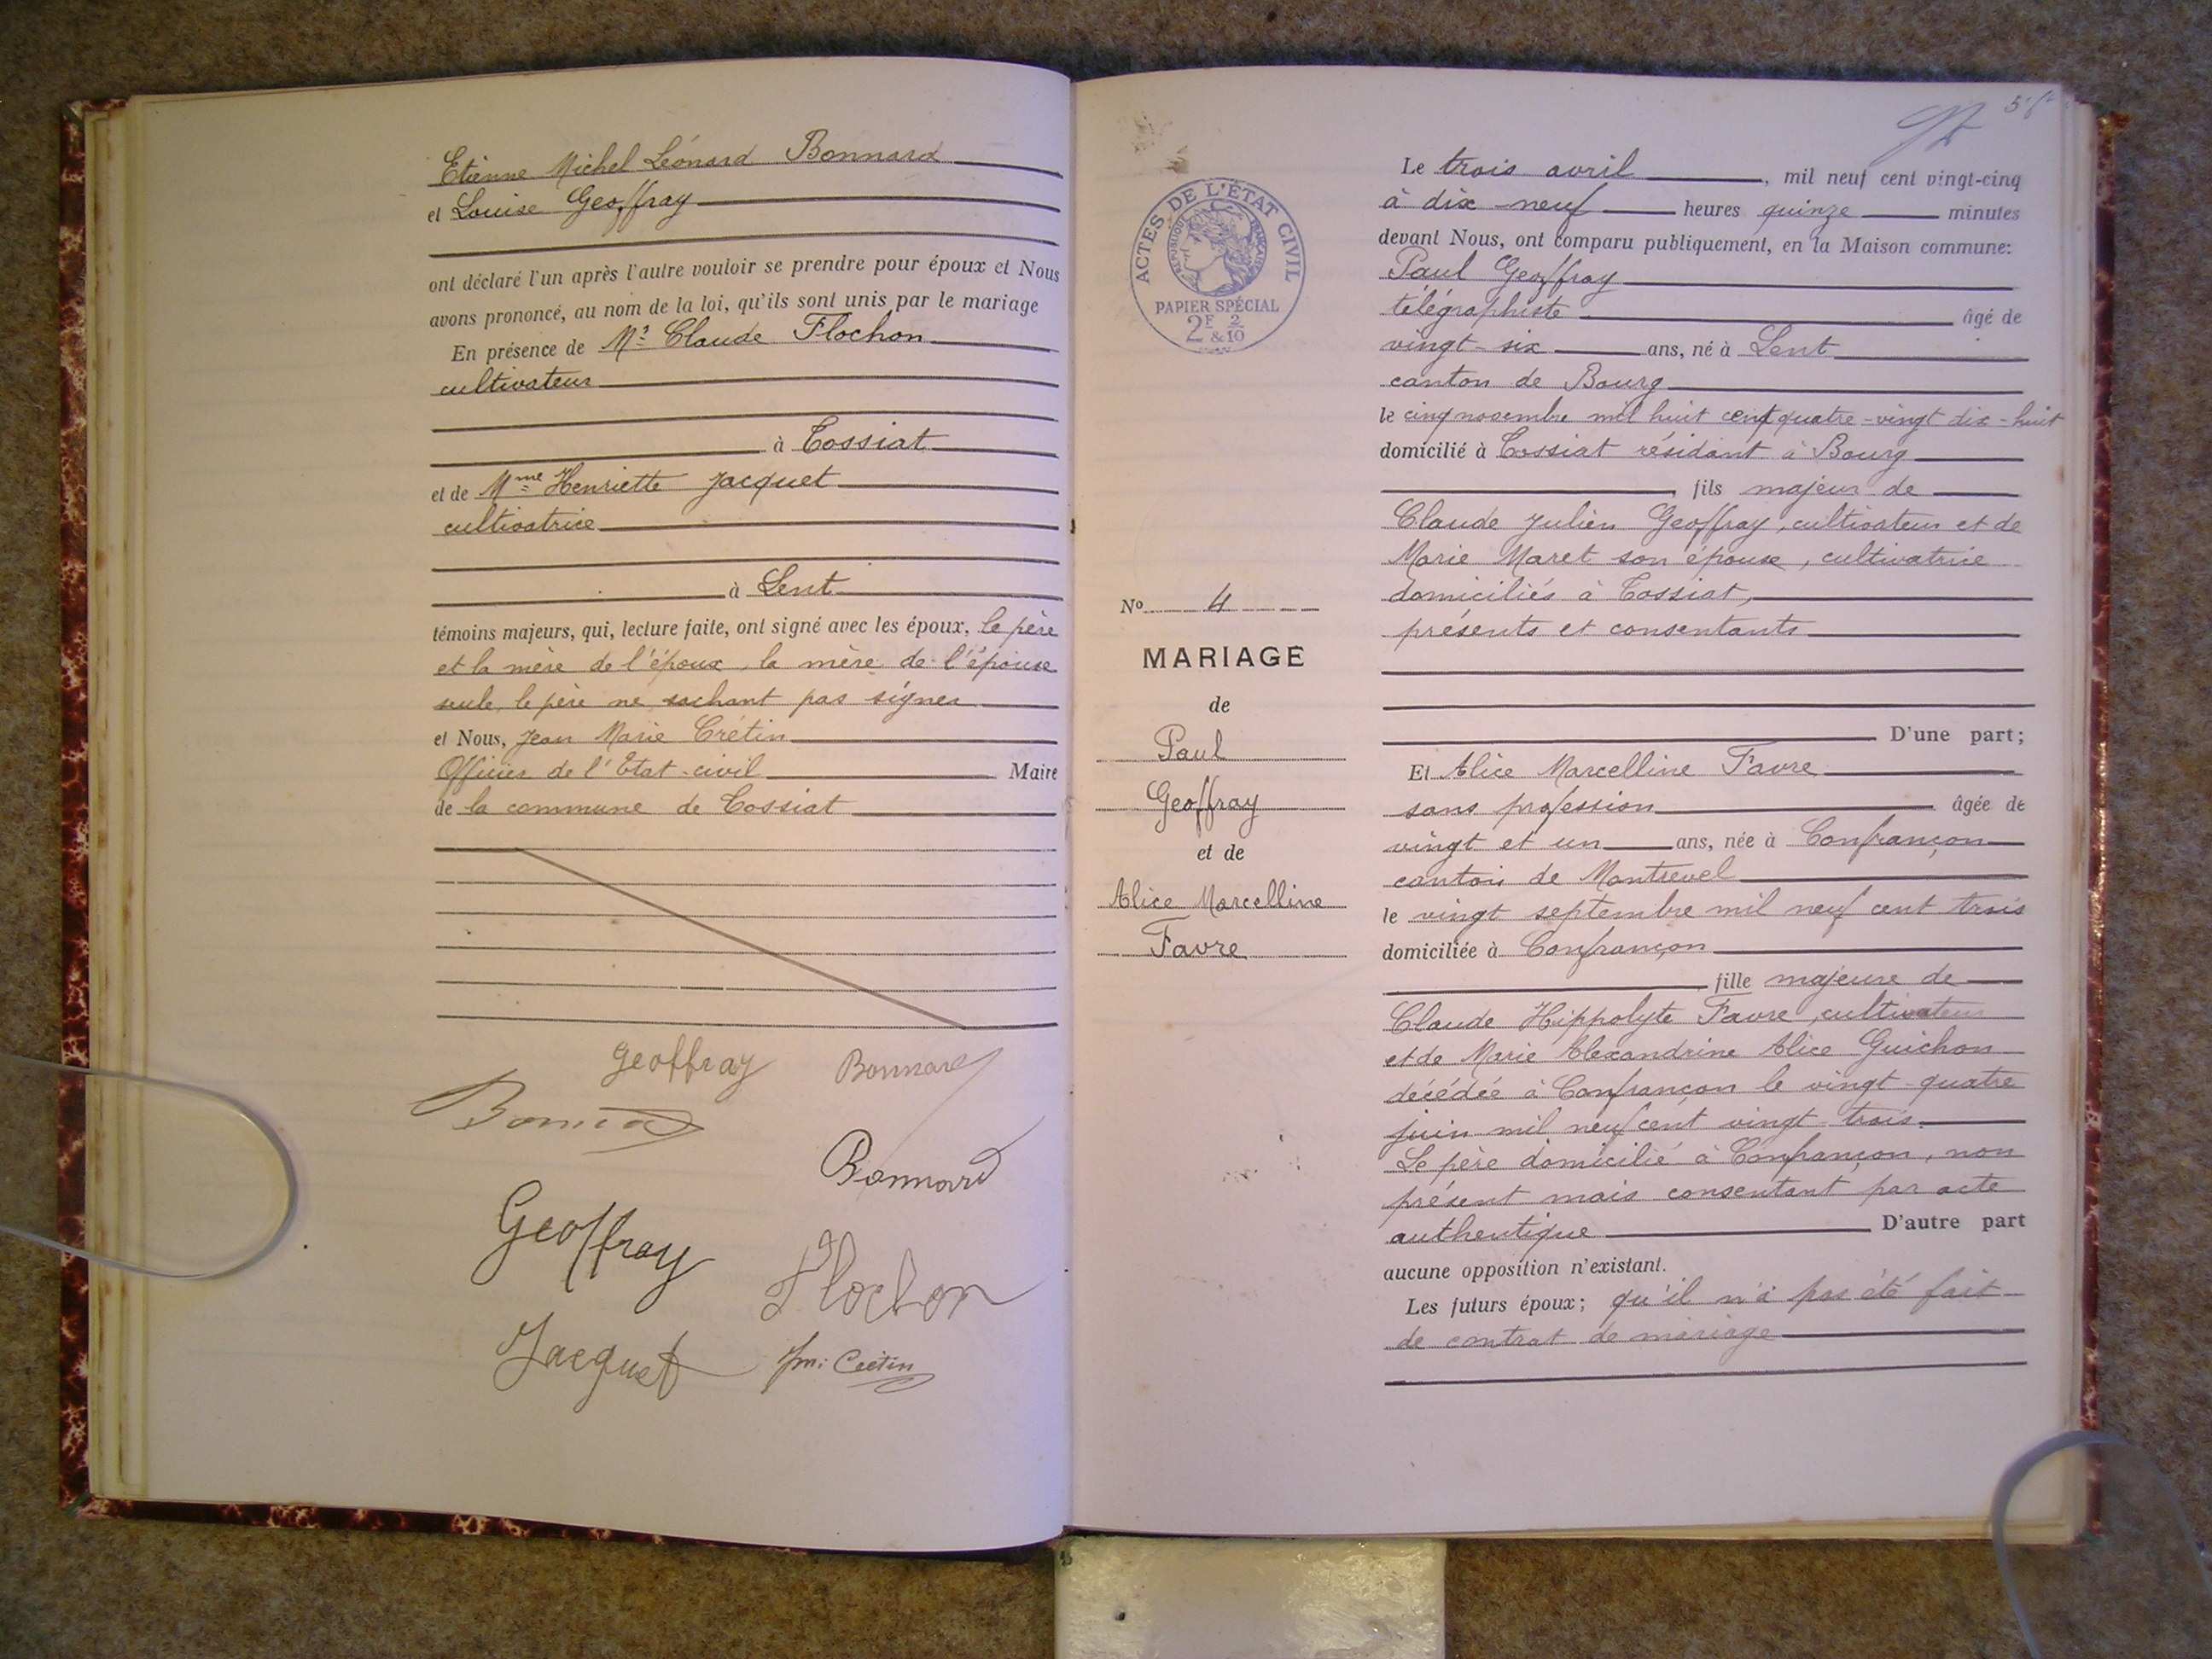 Etienne Michel Léonard Bonnard
et Louise Geoffray
ont déclaré l'un après l'autre vouloir se prendre pour époux et Nous
avons prononcé, au nom de la loi, qu'ils sont unis par le mariage
En présence de Mr Claude Flochon
cultivateur
à Tossiat
et de Mme Henriette Jacquet
cultivatrice
à Lent
témoins majeurs, qui, lecture faite, ont signé avec les époux, le père
et la mère de l'époux, la mère de l'épouse
seule, le père ne sachant pas signer
et Nous, Jean Marie Crétin
Officier de l'Etat-civil Maire
de la commune de Tossiat
Geoffray Bonnard
Bonnard
Bonnard
Geoffray
Flochon
Jacquet Jm: Cretin
Le trois avril, mil neuf cent vingt-cinq
à dix-neuf heures quinze minutes
devant Nous, ont comparu publiquement, en la Maison commune:
Paul Geoffray
télégraphiste âgé de
vingt-six ans, né à Lent
canton de Bourg
le cinq novembre mil huit cent quatre-vingt dix-huit
domicilié à Tossiat résidant à Bourg
fils majeur de
Claude Julien Geoffray, cultivateur et de
Marie Maret son épouse, cultivatrice
domiciliés à Tossiat,
présents et consentants
D'une part;
Et Alice Marcelline Favre
sans profession âgée de
vingt et un ans, née à Confrançon
canton de Montrevel
le vingt septembre mil neuf cent trois
domiciliée à Confrançon
fille majeure de
Claude Hippolyte Favre, cultivateur
et de Marie Alexandrine Alice Guichon
décédée à Confrançon le vingt-quatre
juin mil neuf cent vingt-trois.
Le père domicilié à Confrançon, non
présent mais consentant par acte
authentique D'autre part
aucune opposition n'existant.
Les futurs époux; qu'il n'a pas été fait
de contrat de mariage
ACTES DE L'ÉTAT CIVIL
RÉPUBLIQUE FRANÇAISE
PAPIER SPÉCIAL
2F 2
&10
No 4
MARIAGE
de
Paul
Geoffray
et de
Alice Marcelline
Favre